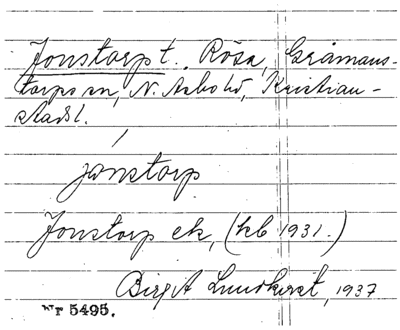 Jonstorp t. Röda, Gråmans-
torps sn, N. Asbo hd, Kristian-
stads l.
jonstorp
Jonstorp ek, (kb 1931.)
Birgit Lundkvist, 1937
Nr 5495.